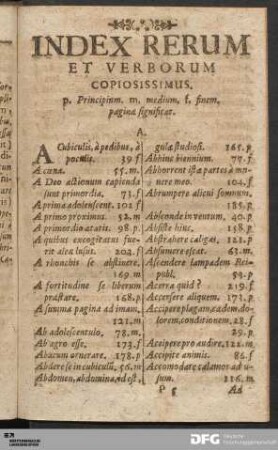 INDEX RERUM
ET VERBORUM
COPIOSISSIMUS.
p. Principium. m. medium, f. finem,
paginæ significat.
A.
A Cubiculis, à pedibus, à
poculis. 39. f
A cæna. 55. m.
A Deo actionum capienda
sunt primordia. 73. f
A prima adolescent. 202 f
A primo proximus. 52. m
A primordio ætatis. 98. p.
A quibus excogitatus fue-
rit alea lusus. 204. f
A rhonchis se abstinere.
169. m
A fortitudine se liberum
præstare. 168. p
A summa pagina ad imam.
121. m
Ab adolescentulo. 78. m.
Ab agro esse. 173. f
Abacum ornatare. 178. p
Abdere se in cubiculū. 56. m
Abdomen, abdomina, id est,
gulæ studiosi. 165. p.
Abhinc biennium. 77. f.
Abhorrent ista partes à mu-
nere meo. 104. f
Abrumpere alicui somnum.
185. p.
Abscondo in ventum, 40. p
Abliste hinc, 158. p
Abstrahere caligas, 121. p
Absumere escat. 63. m.
Ascendere lampadem Rei-
publ. 59. p
Acerra quid? 219. f.
Accersere aliquem. 171. f
Accipere plagam, eadem, do-
lorem, conditionem, 28. f
29. p.
Accipere pro audire, 121. m.
Accipite animis. 86. f
Accomodare calamos ad u-
sum. 216. m.
Ad
DFG